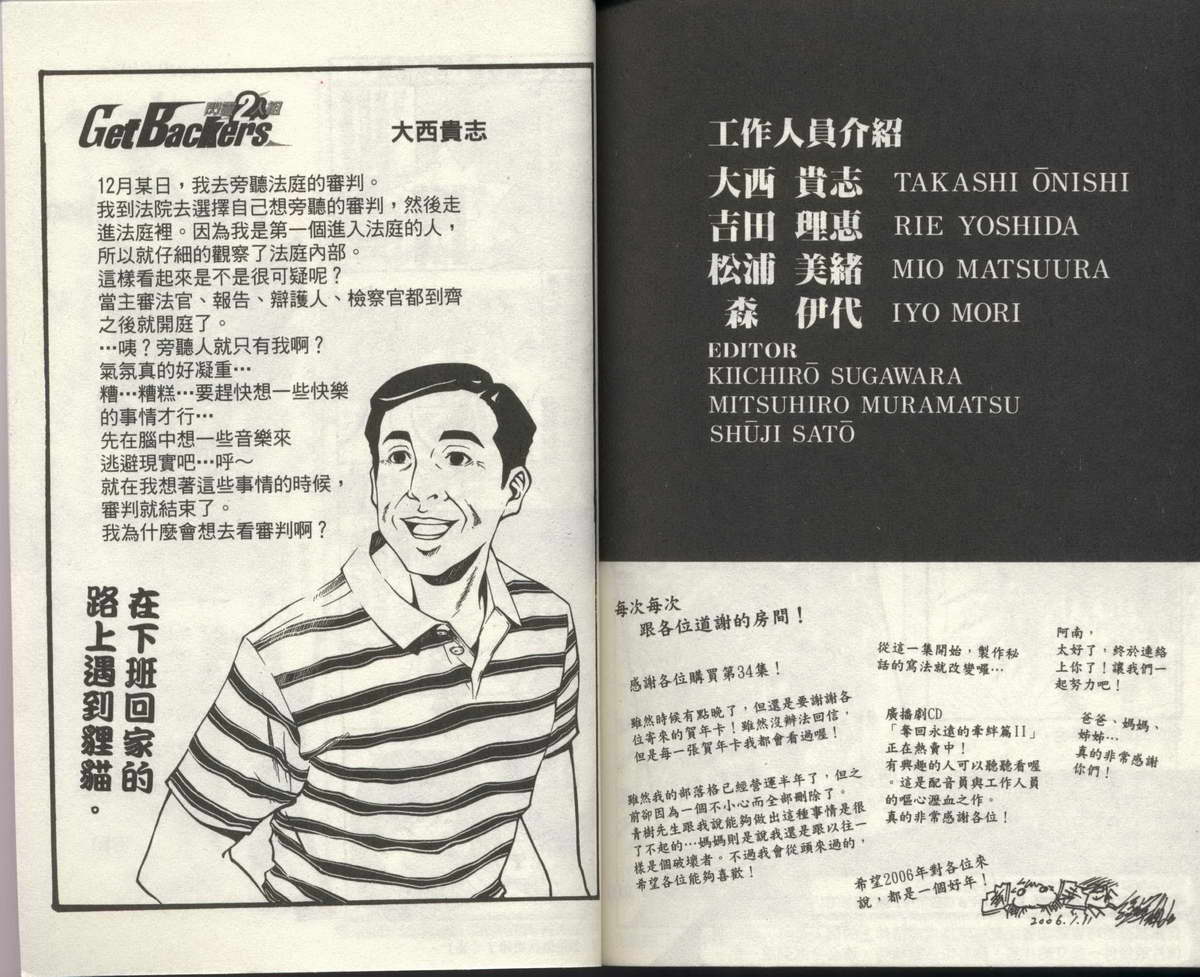 GetBackers
閃靈2人組
大西貴志
12月某日，我去旁聽法庭的審判。
我到法院去選擇自己想旁聽的審判，然後走
進法庭裡。因為我是第一個進入法庭的人，
所以就仔細的觀察了法庭內部。
這樣看起來是不是很可疑呢？
當主審法官、報告、辯護人、檢察官都到齊
之後就開庭了。
…咦？旁聽人就只有我啊？
氣氛真的好凝重…
糟…糟糕…要趕快想一些快樂
的事情才行…
先在腦中想一些音樂來
逃避現實吧…呼～
就在我想著這些事情的時候，
審判就結束了。
我為什麼會想去看審判啊？
在下班回家的
路上遇到貍貓。
工作人員介紹
大西 貴志 TAKASHI ŌNISHI
吉田 理恵 RIE YOSHIDA
松浦 美緒 MIO MATSUURA
森 伊代 IYO MORI
EDITOR
KIICHIRŌ SUGAWARA
MITSUHIRO MURAMATSU
SHŪJI SATŌ
每次每次
跟各位道謝的房間！
感謝各位購買第34集！
雖然時候有點晚了，但還是要謝謝各
位寄來的賀年卡！雖然沒辦法回信，
但是每一張賀年卡我都會看過喔！
雖然我的部落格已經營運半年了，但之
前卻因為一個不小心而全部刪除了。
青樹先生跟我說能夠做出這種事情是很
了不起的…媽媽則是說我還是跟以往一
樣是個破壞者。不過我會從頭來過的，
希望各位能夠喜歡！
從這一集開始，製作秘
話的寫法就改變囉…
廣播劇CD
「奪回永遠的牽絆篇II」
正在熱賣中！
有興趣的人可以聽聽看喔
。這是配音員與工作人員
的嘔心瀝血之作。
真的非常感謝各位！
阿南，
太好了，終於連絡
上你了！讓我們一
起努力吧！
爸爸、媽媽、
姊姊…
真的非常感謝
你們！
希望2006年對各位來
說，都是一個好年！
2006.1.11